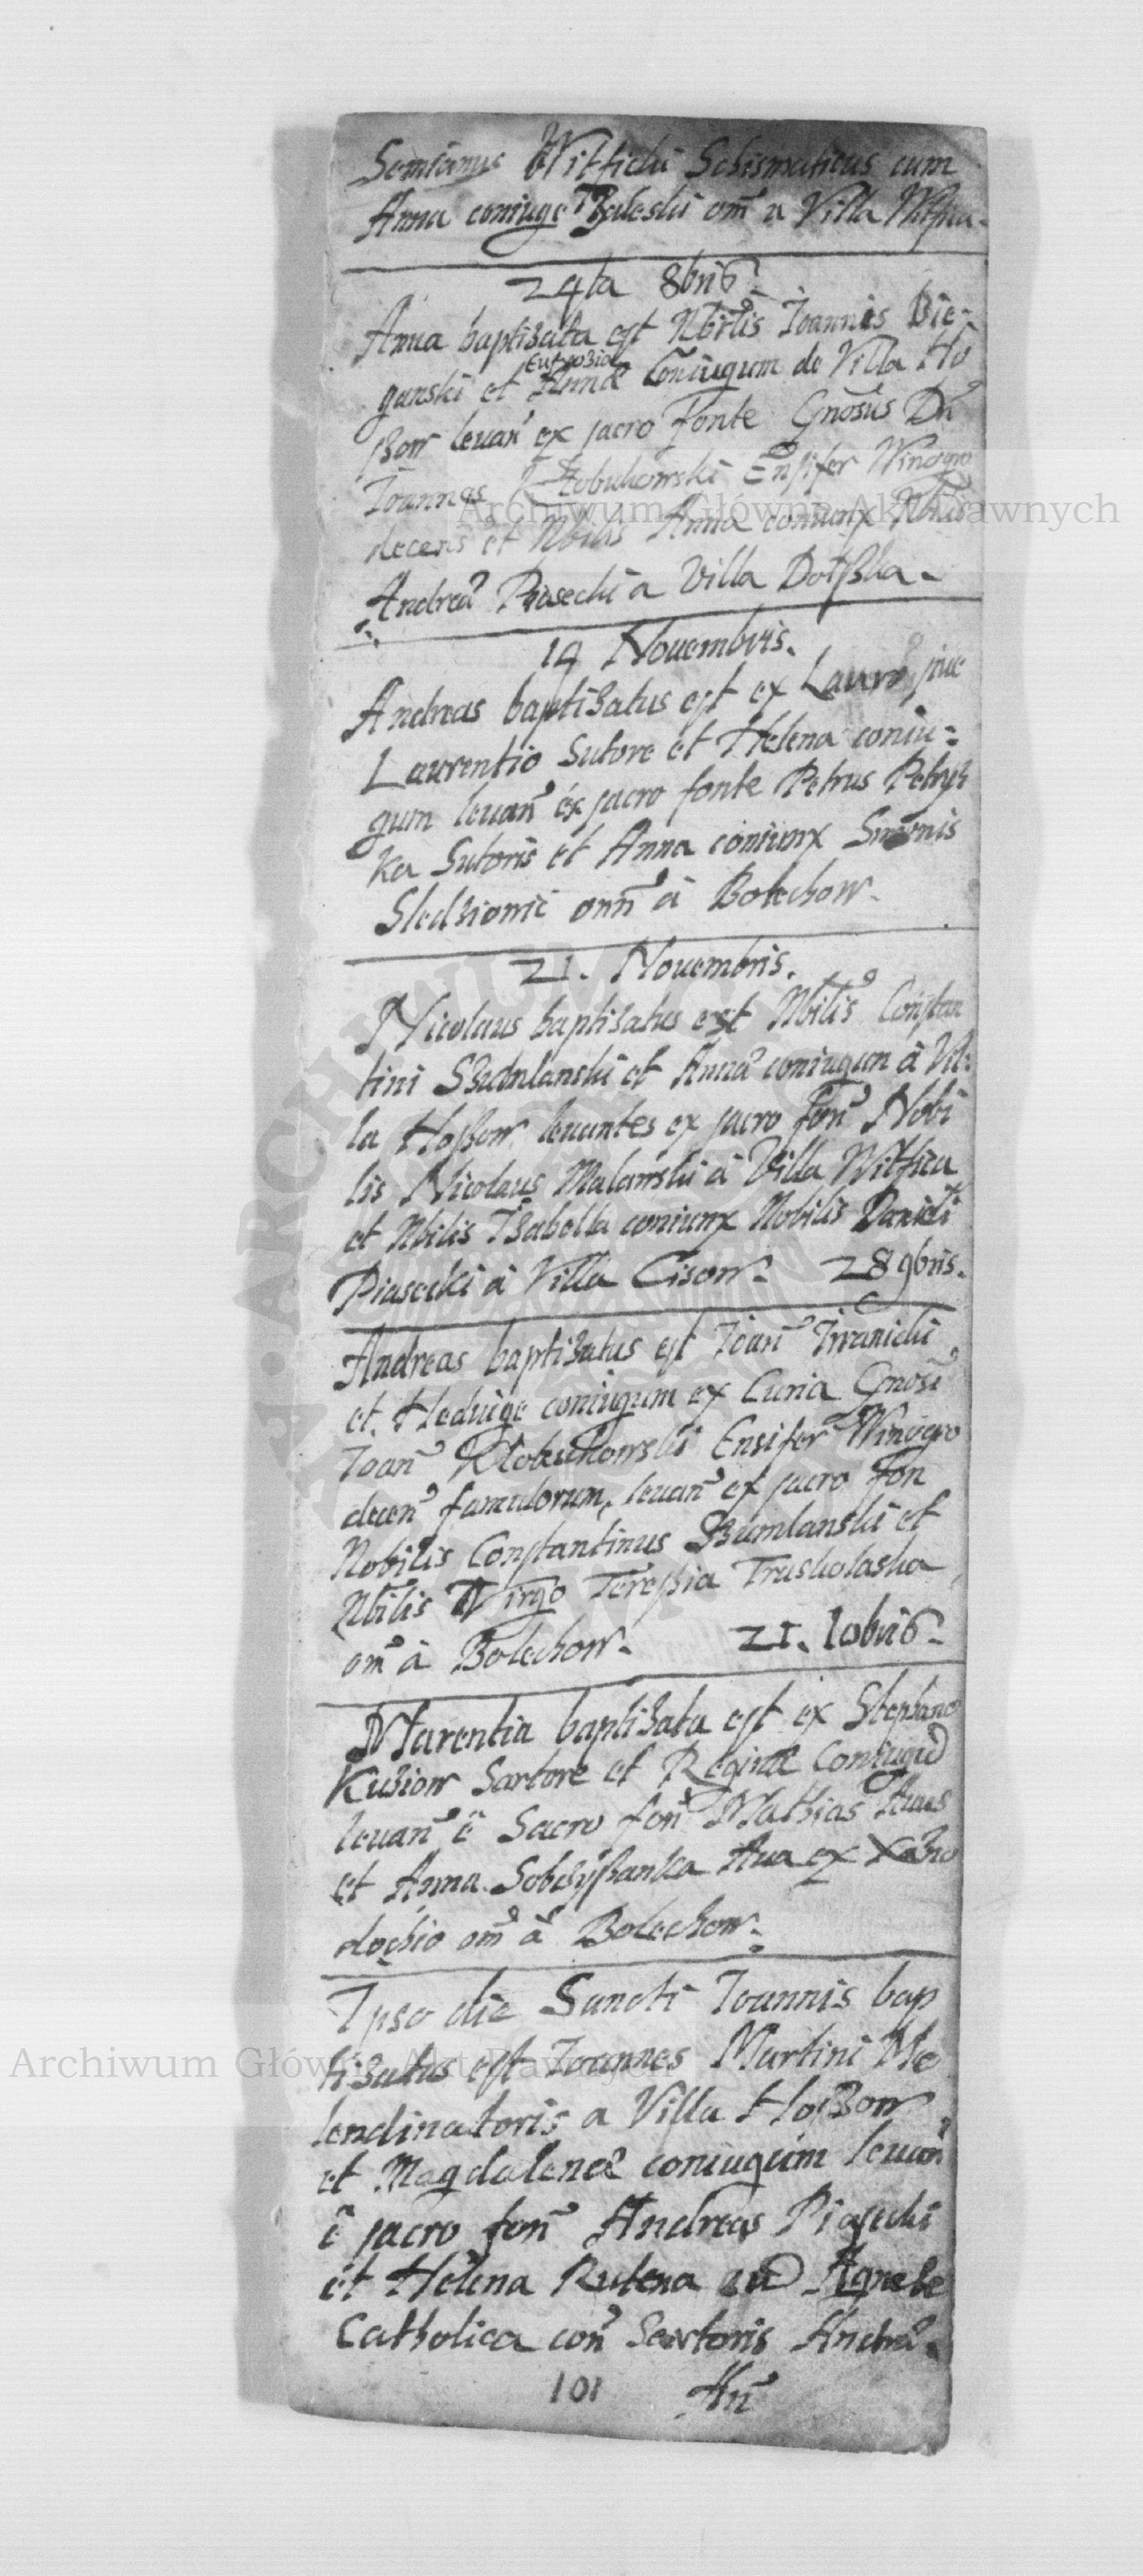 Semianus Witficki Schismaticus cum
Anna coniuge Baleski om̃ a Villa Witfica.
24ta 8bris.
Anna baptisata est Nbilis Ioannis Bie-
ganski et Annæ Coniugum de Villa Ho
Eufrosiæ
szow leuañ ex sacro fonte Gnosus Dñ
Ioannes Kłobukowski Ensifer Winogro
decens et Nbilis Anna coniunx Nbilis
Andreæ Piasecki a Villa Dolszka.
19 Nouembris.
Andreas baptisatus est ex Lauro siue
Laurentio Sutore et Helena coniu-
gum leuañ ex sacro fonte Petrus Petrys
ka Sutoris et Anna coniunx Simonis
Sledziowic omñ à Bolechow.
21. Nouembris.
Nicolaus baptisatus est Nbilis Constan
tini Szumlanski et Annæ coniugum à Vil-
la Hoszow, leuantes ex sacro foñ Nobi
lis Nicolaus Malawski à Villa Witfica
et Nbilis Isabella coniunx Nobilis Danieli
Piasecki à Villa Cisow. 28 9bris.
Andreas baptisatus est Ioañ Iwanicki
et Hedwige coniugum ex Curia Gnosi
Ioañ Kłobukowski Ensifer Winogro
decen famulorum, leuañ ex sacro Fon
Nobilis Constantinus Szumlanski et
Nbilis Virgo Teressia Truskolaska
om̃ à Bolechow. 21. 10bris.
Marentia baptisata est ex Stephano
Kuziow Sartore et Reginæ Coniugũ
leuañ è Sacro foñ Mathias
et Anna Sobczyszanka ex Xeno
dochio om̃ à Bolechow.
Ipso die Sancti Ioannis bap
tisatus est Ioannes Martini Mo
lendinatoris a Villa Hoszow
et Magdalenæ coniugum leuañ
è sacro foñ Andreas Piasecki
et Helena Rutena Agnete
Catholica coñ Sartoris Andreæ.
101 Añ
Archiwum Główne Akt Dawnych
Archiwum Główne Akt Dawnych